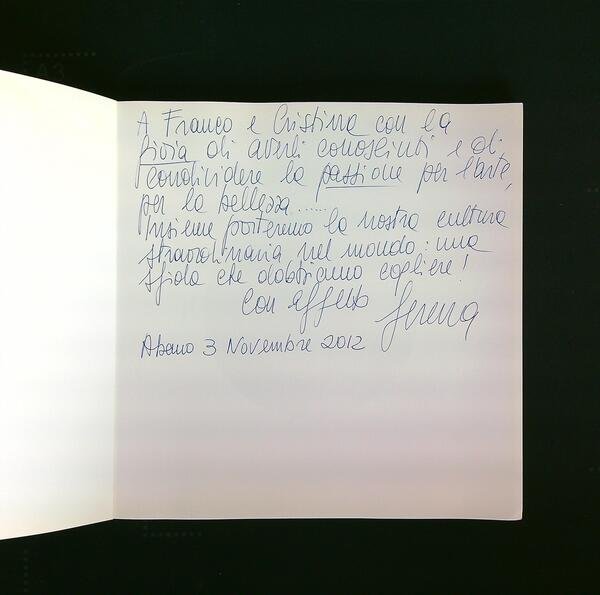 A Franco e Cristina con la
gioia di averli conosciuti e di
condividere la passione per l'arte,
per la bellezza......
Insieme porteremo la nostra cultura
straordinaria nel mondo: una
sfida che dobbiamo cogliere!
Con affetto Serena
Abano 3 Novembre 2012